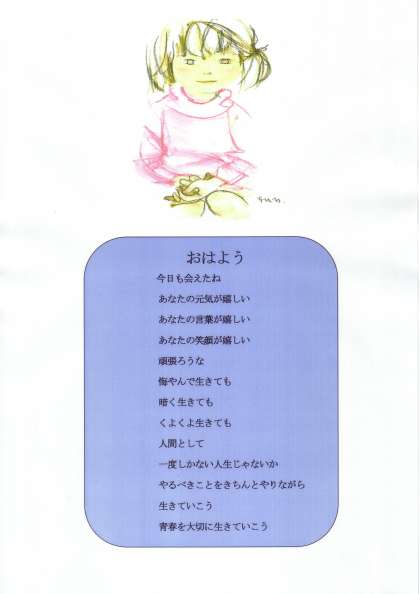 おはよう
今日も会えたね
あなたの元気が嬉しい
あなたの言葉が嬉しい
あなたの笑顔が嬉しい
頑張ろうな
悔やんで生きても
暗く生きても
くよくよ生きても
人間として
一度しかない人生じゃないか
やるべきことをきちんとやりながら
生きていこう
青春を大切に生きていこう